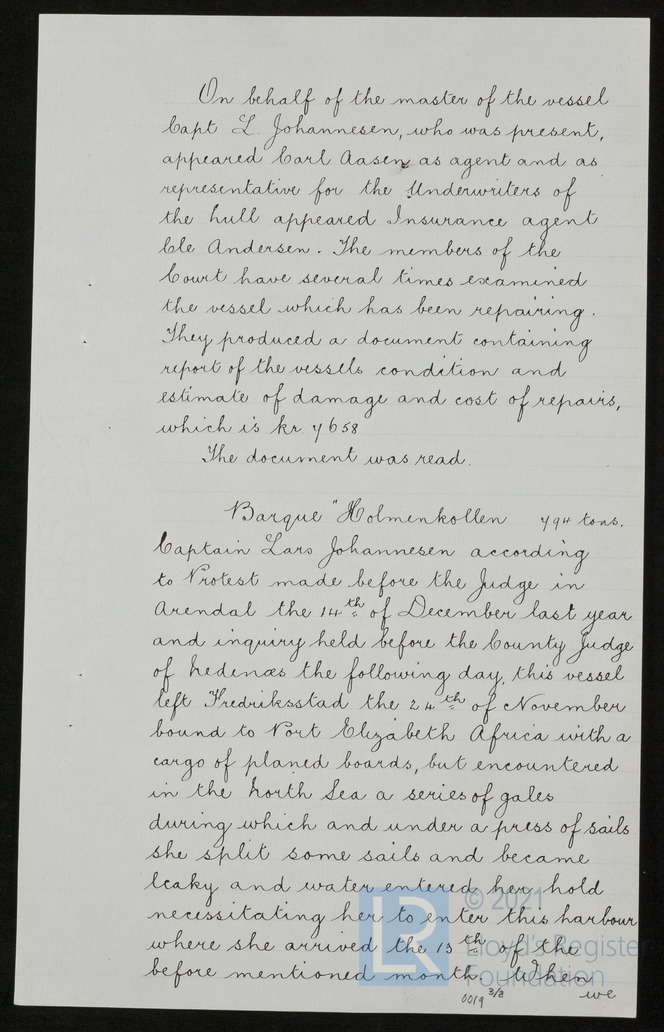 On behalf of the master of the vessel
Capt L. Johannesen, who was present,
appeared Carl Aasen as agent and as
representative for the Underwriters of
the hull appeared Insurance agent
Ole Andersen. The members of the
Court have several times examined
the vessel which has been repairing.
They produced a document containing
report of the vessels condition and
estimate of damage and cost of repairs,
which is kr 7658
The document was read.
Barque "Holmenkollen 794 tons.
Captain Lars Johannesen according
to Protest made before the Judge in
Arendal the 14th of December last year
and inquiry held before the County Judge
of Nedenæs the following day, this vessel
left Fredriksstad the 24th of November
bound to Port Elizabeth Africa with a
cargo of planed boards, but encountered
in the North Sea a series of gales
during which and under a press of sails
she split some sails and became
leaky and water entered her hold
necessitating her to enter this harbour
where she arrived the 13th of the
before mentioned month. When
we
0019 3/8
LR
© 2021
Lloyd's Register
Foundation